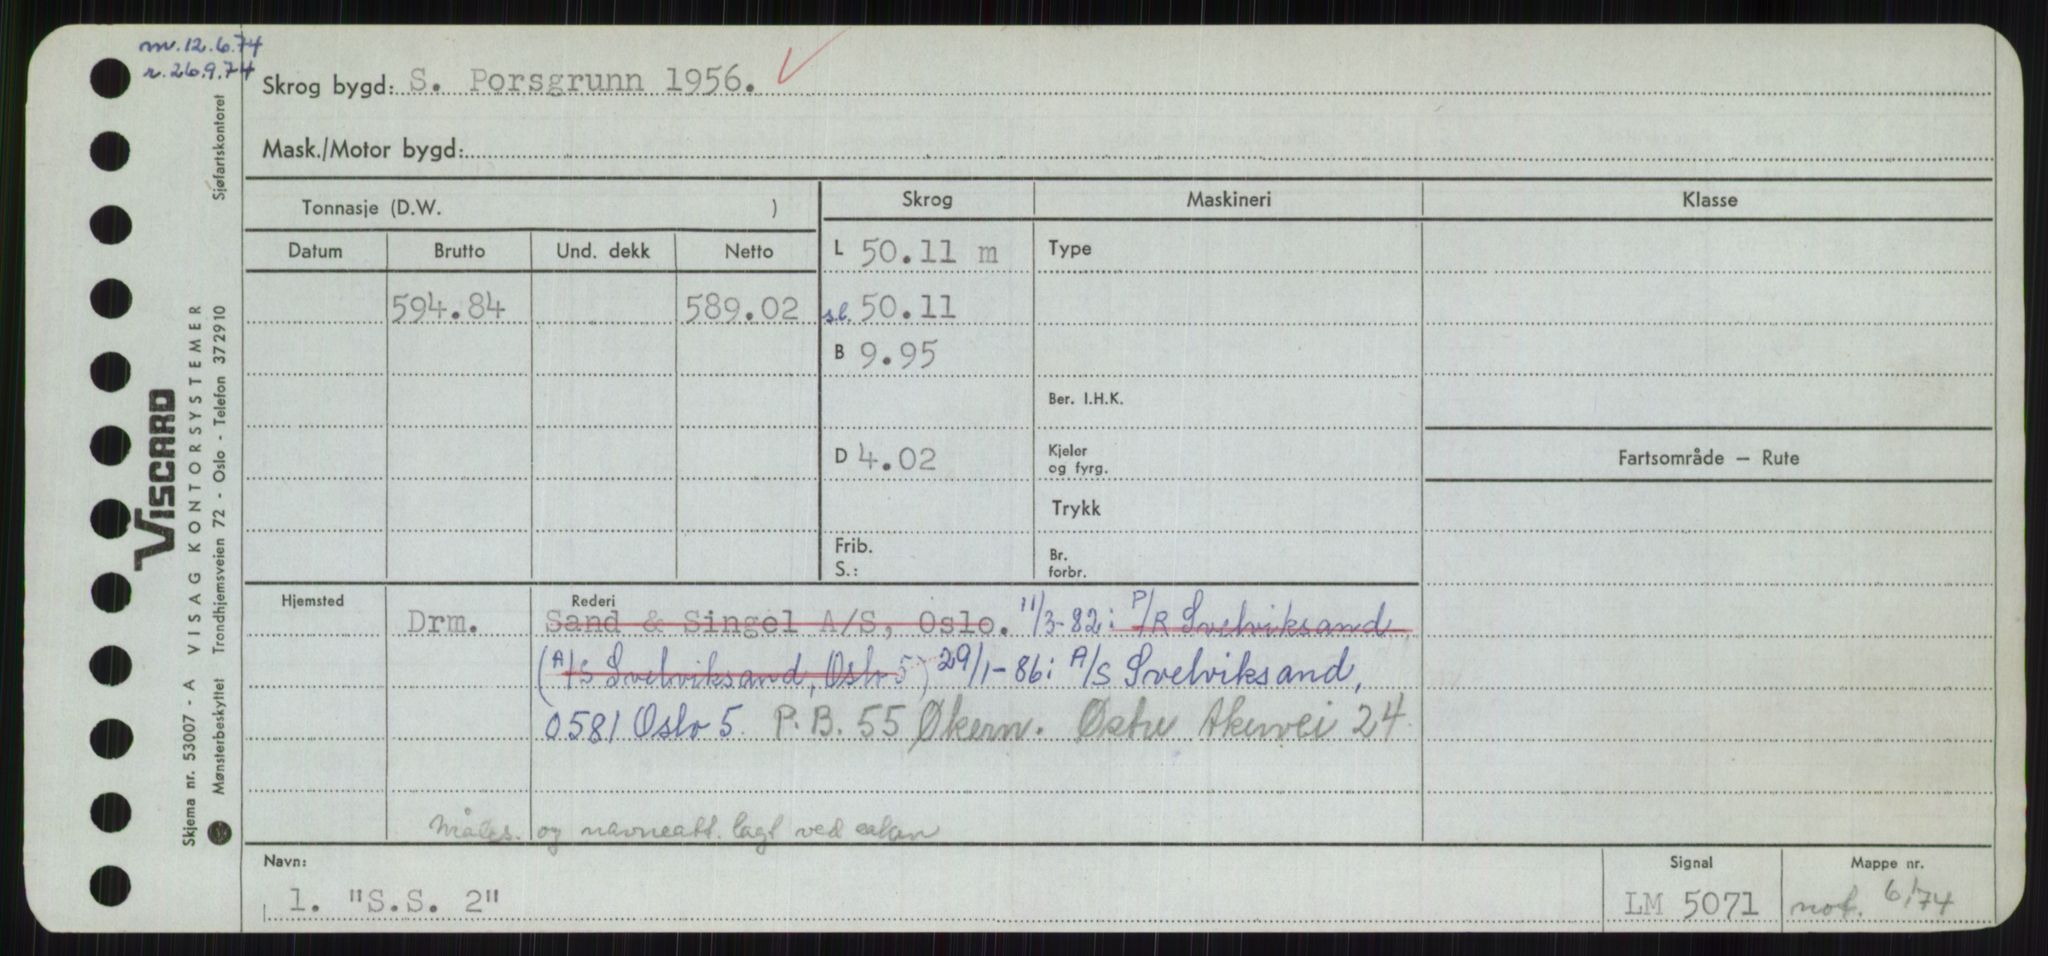 m. 12.6.74
r. 26.9.74
Skrog bygd: S. Porsgrunn 1956.
Mask./Motor bygd:
Tonnasje (D.W. )
Skrog
Maskineri
Klasse
Datum
Brutto
Und. dekk
Netto
L 50.11 m
Type
594.84
589.02
s.l. 50.11
B 9.95
Ber. I.H.K.
D 4.02
Kjeler
og fyrg.
Fartsområde — Rute
Trykk
Frib.
S.:
Br.
forbr.
Hjemsted
Drm.
Rederi
Sand & Singel A/S, Oslo. 11/3-82: P/R Svelviksand
(A/S Svelviksand, Oslo 5) 29/1-86: A/S Svelviksand,
0581 Oslo 5. P.B. 55 Økern. Østre Akervei 24
og navneatt. lagt ved
Navn:
1. "S.S. 2"
Signal
LM 5071
Mappe nr.
not. 6/74
Skjema nr. 53007 - A VISAG KONTORSYSTEMER
Mønsterbeskyttet Trondhjemsveien 72 - Oslo - Telefon 372910 Sjøfartskontoret
VISCARD